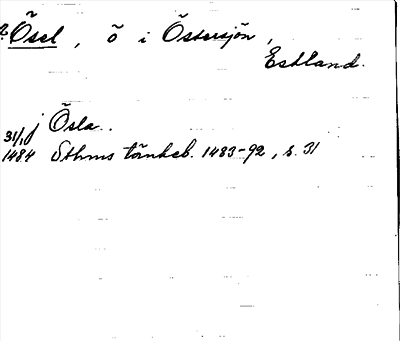 ? Ösel, ö i Östersjön,
Estland.
j Ösla.
31/1 1484 Sthms tänkeb. 1483-92, s. 31